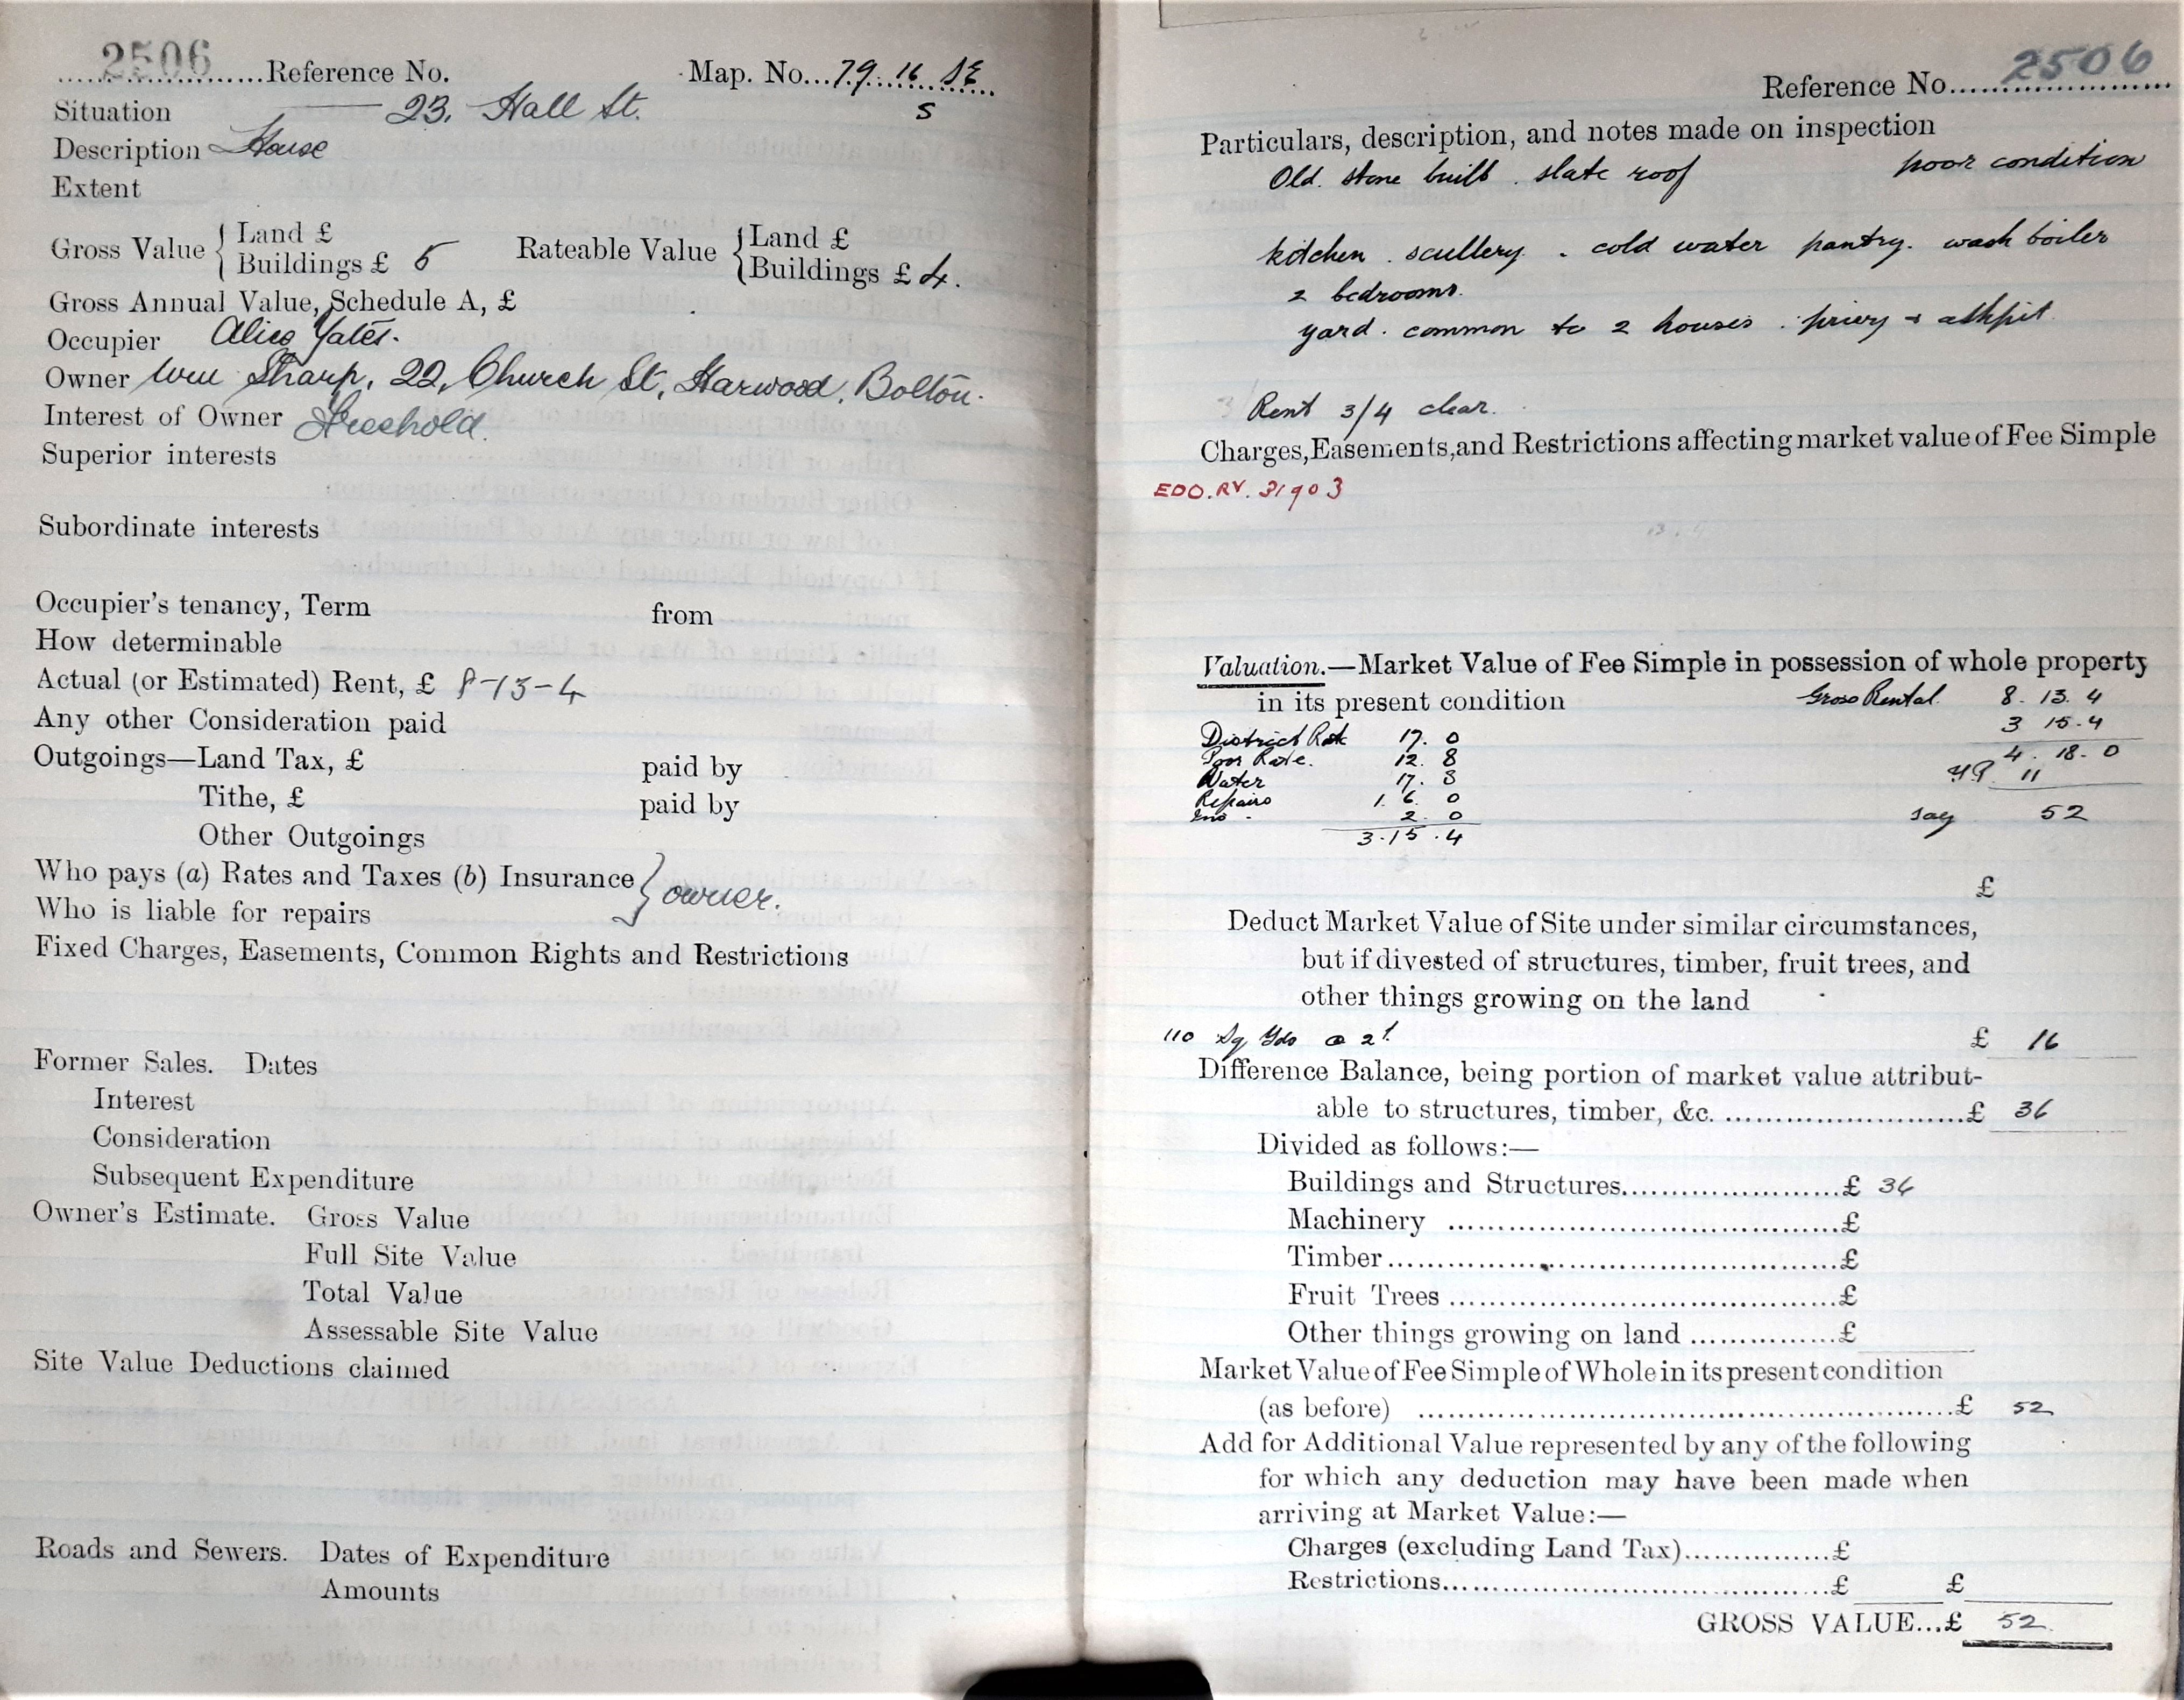 2506 Reference No. Map. No... 79. 16 SE
S
Situation 23, Hall St.
Description House
Extent
Gross Value { Land £
Buildings £ 5
Rateable Value { Land £
Buildings £ 4.
Gross Annual Value, Schedule A, £
Occupier Alice Yates.
Owner Wm Sharp, 22, Church St, Harwood, Bolton.
Interest of Owner Freehold.
Superior interests
Subordinate interests
Occupier's tenancy, Term from
How determinable
Actual (or Estimated) Rent, £ 8-13-4
Any other Consideration paid
Outgoings—Land Tax, £ paid by
Tithe, £ paid by
Other Outgoings
Who pays (a) Rates and Taxes (b) Insurance } owner.
Who is liable for repairs
Fixed Charges, Easements, Common Rights and Restrictions
Former Sales. Dates
Interest
Consideration
Subsequent Expenditure
Owner's Estimate. Gross Value
Full Site Value
Total Value
Assessable Site Value
Site Value Deductions claimed
Roads and Sewers. Dates of Expenditure
Amounts
Reference No. 2506
Particulars, description, and notes made on inspection
Old. stone built. slate roof poor condition
kitchen. scullery. cold water pantry. wash boiler
2 bedrooms.
yard. common to 2 houses. privy + ashpit.
Rent 3/4 clear.
Charges, Easements, and Restrictions affecting market value of Fee Simple
EDO. RV. 31903
Valuation.—Market Value of Fee Simple in possession of whole property
in its present condition Gross Rental 8. 13. 4
3 15. 4
District Rate 17. 0
4. 18. 0
Poor Rate. 12. 8
YP 11
Water 17. 8
Repairs 1. 6. 0
say 52
Ins. 2. 0
3. 15. 4
£
Deduct Market Value of Site under similar circumstances,
but if divested of structures, timber, fruit trees, and
other things growing on the land
110 Sq Yds @ 2/. £ 16
Difference Balance, being portion of market value attribut-
able to structures, timber, &c. £ 36
Divided as follows:—
Buildings and Structures £ 36
Machinery £
Timber £
Fruit Trees £
Other things growing on land £
Market Value of Fee Simple of Whole in its present condition
(as before) £ 52
Add for Additional Value represented by any of the following
for which any deduction may have been made when
arriving at Market Value:—
Charges (excluding Land Tax) £
Restrictions £ £
GROSS VALUE...£ 52